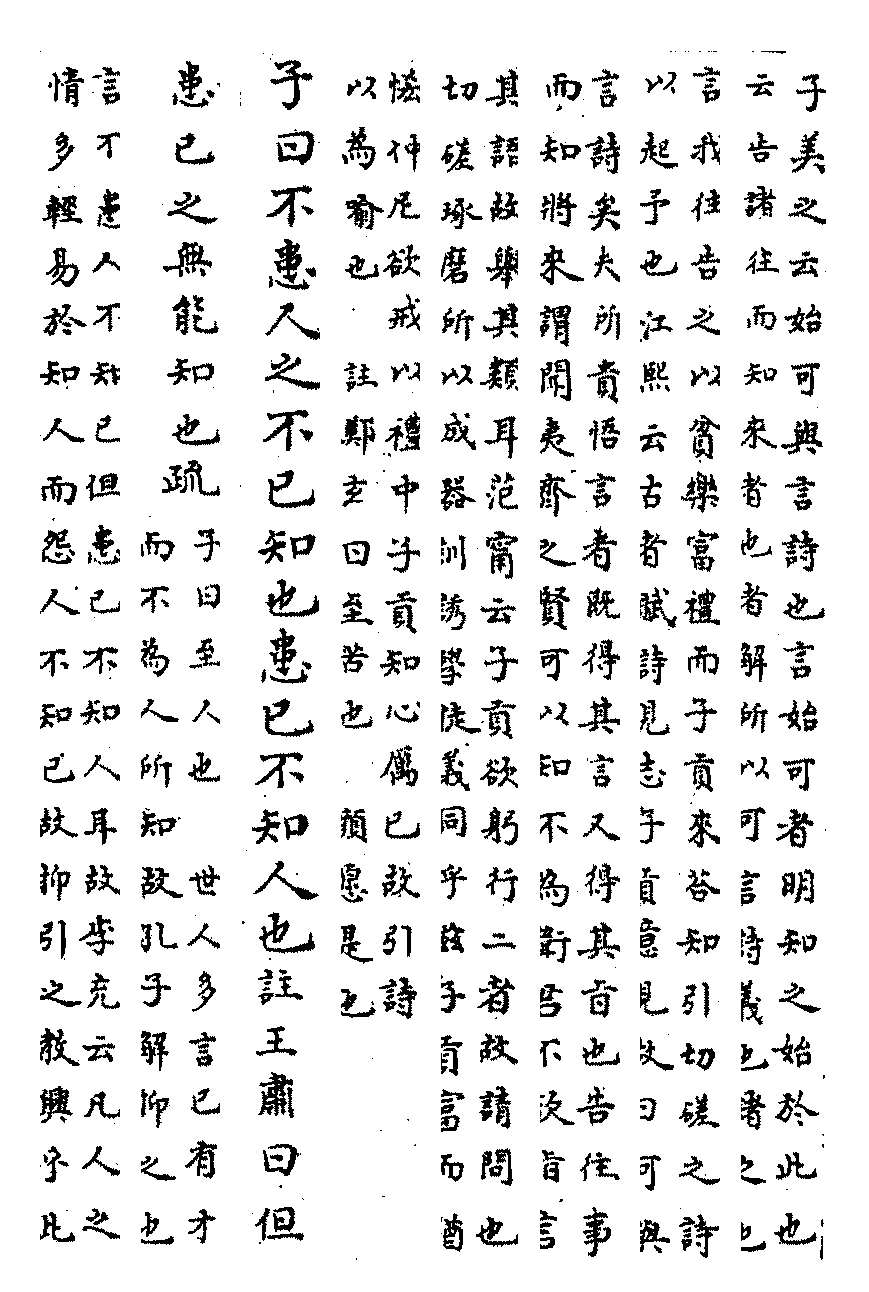 子美之云始可與言詩也言始可者明知之始於此也
云告諸往而知來者也者解所以可言詩義也諸之也
言我往告之以貧樂富禮而子貢來荅知引切磋之詩
以起予也江熙云古者賦詩見志子貢意見故曰可與
言詩矣夫所貴悟言者既得其言又得其旨也告往事
而知將來謂聞夷齊之賢可以知不為衛君不欲指言
其語故舉其類耳范甯云子貢欲躬行二者故請問也
切磋琢磨所以成器訓誘學徒義同乎茲子貢富而猶
恡仲尼欲戒以禮中子貢知心厲己故引詩
以為喻也 註鄭玄曰至苦也 顏愿是也
子曰不患人之不己知也患己不知人也註王肅曰但
患己之無能知也疏
子曰至人也 世人多言己有才
而不為人所知故孔子解抑之也
言不患人不知己但患己不知人耳故李充云凡人之
情多輕易於知人而怨人不知己故抑引之教興乎此